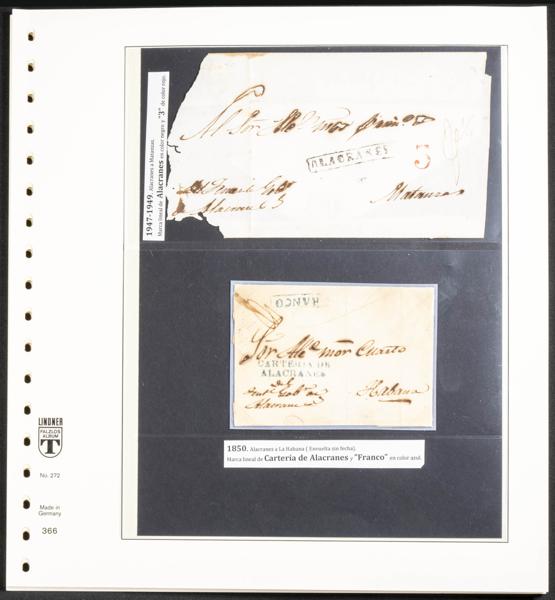 1947-1949. Alacranes a Matanzas.
Marca lineal de Alacranes en color negro y "3" de color rojo.
Al Sor Alce. mor
ALACRANES
3
Alacranes
Matanzas
FRANCO
Sor Alce. mor Cuarto
CARTERIA DE
ALACRANES
Habana
Alacranes
1850. Alacranes a La Habana ( Envuelta sin fecha).
Marca lineal de Carteria de Alacranes y "Franco" en color azul.
LINDNER
FALZLOS
ALBUM
T
No. 272
Made in
Germany
366